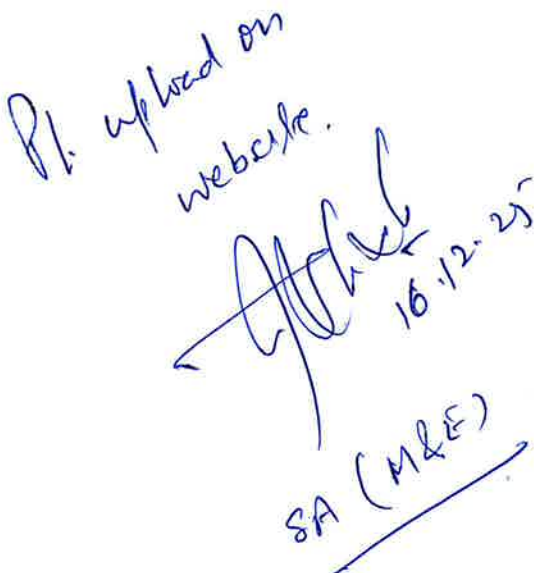 Pl. upload on
website.
16.12.25
SA (M&E)